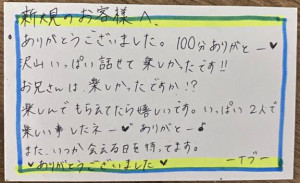 新大久保のお客様へ
ありがとうございました。100分ありがとー♥
沢山いっぱい話せて楽しかったです!!
お兄さんは楽しかったですか!?
楽しんでもらえてたら嬉しいです。いっぱい2人で
楽しい事したネー♥ ありがとー♪
また、いつか会える日を待ってます。
♥ありがとうございました♥ ーイブー